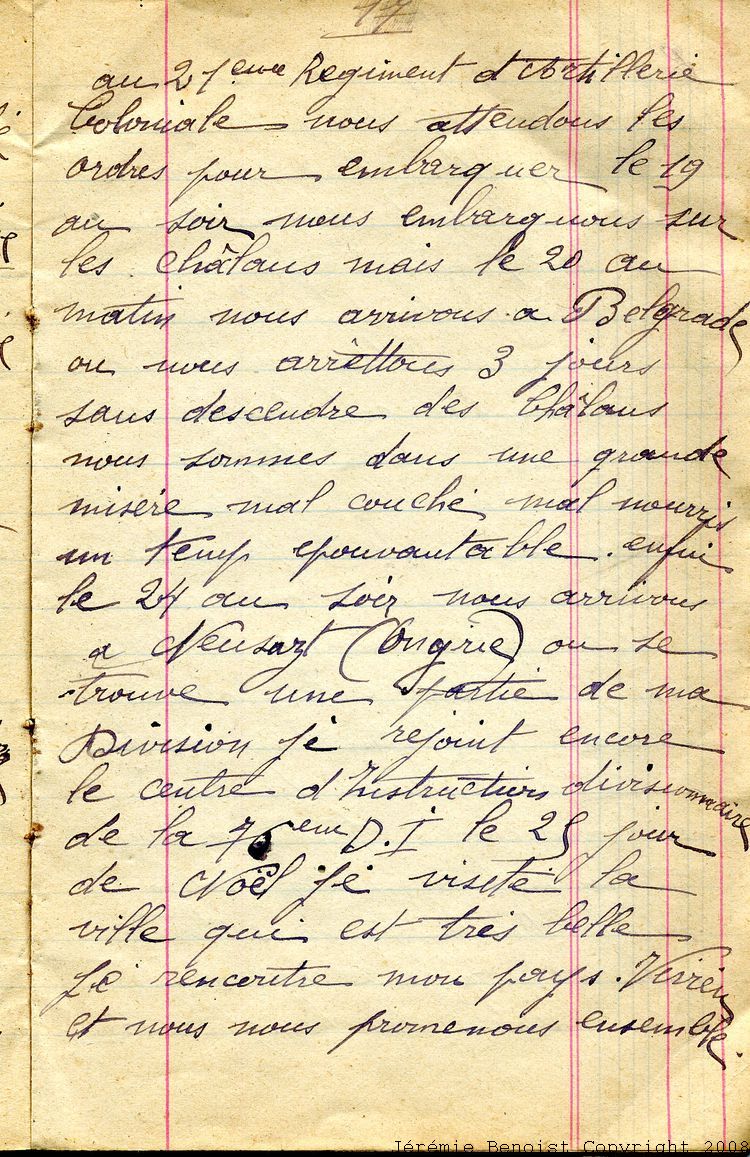 17
au 21eme Regiment d'Artillerie
Coloniale nous attendons les
ordres pour embarquer le 19
au soir nous embarquons sur
les châlans mais le 20 au
matin nous arrivons a Belgrade
ou nous arrêttons 3 jours
sans descendre des Châlans
nous sommes dans une grande
misère mal couché mal nourris
un temp epouvantable. enfin
le 24 au soir nous arrivons
a Neusazt (Ongrie) ou se
trouve une partie de ma
Division je rejoint encore
le centre d'Instruction divisionnaire
de la 76eme D.I le 25 jour
de Noël je visite la
ville qui est très belle
je rencontre mon pays. Virieu
et nous nous promenons ensemble.
Jérémie Benoist Copyright 2008